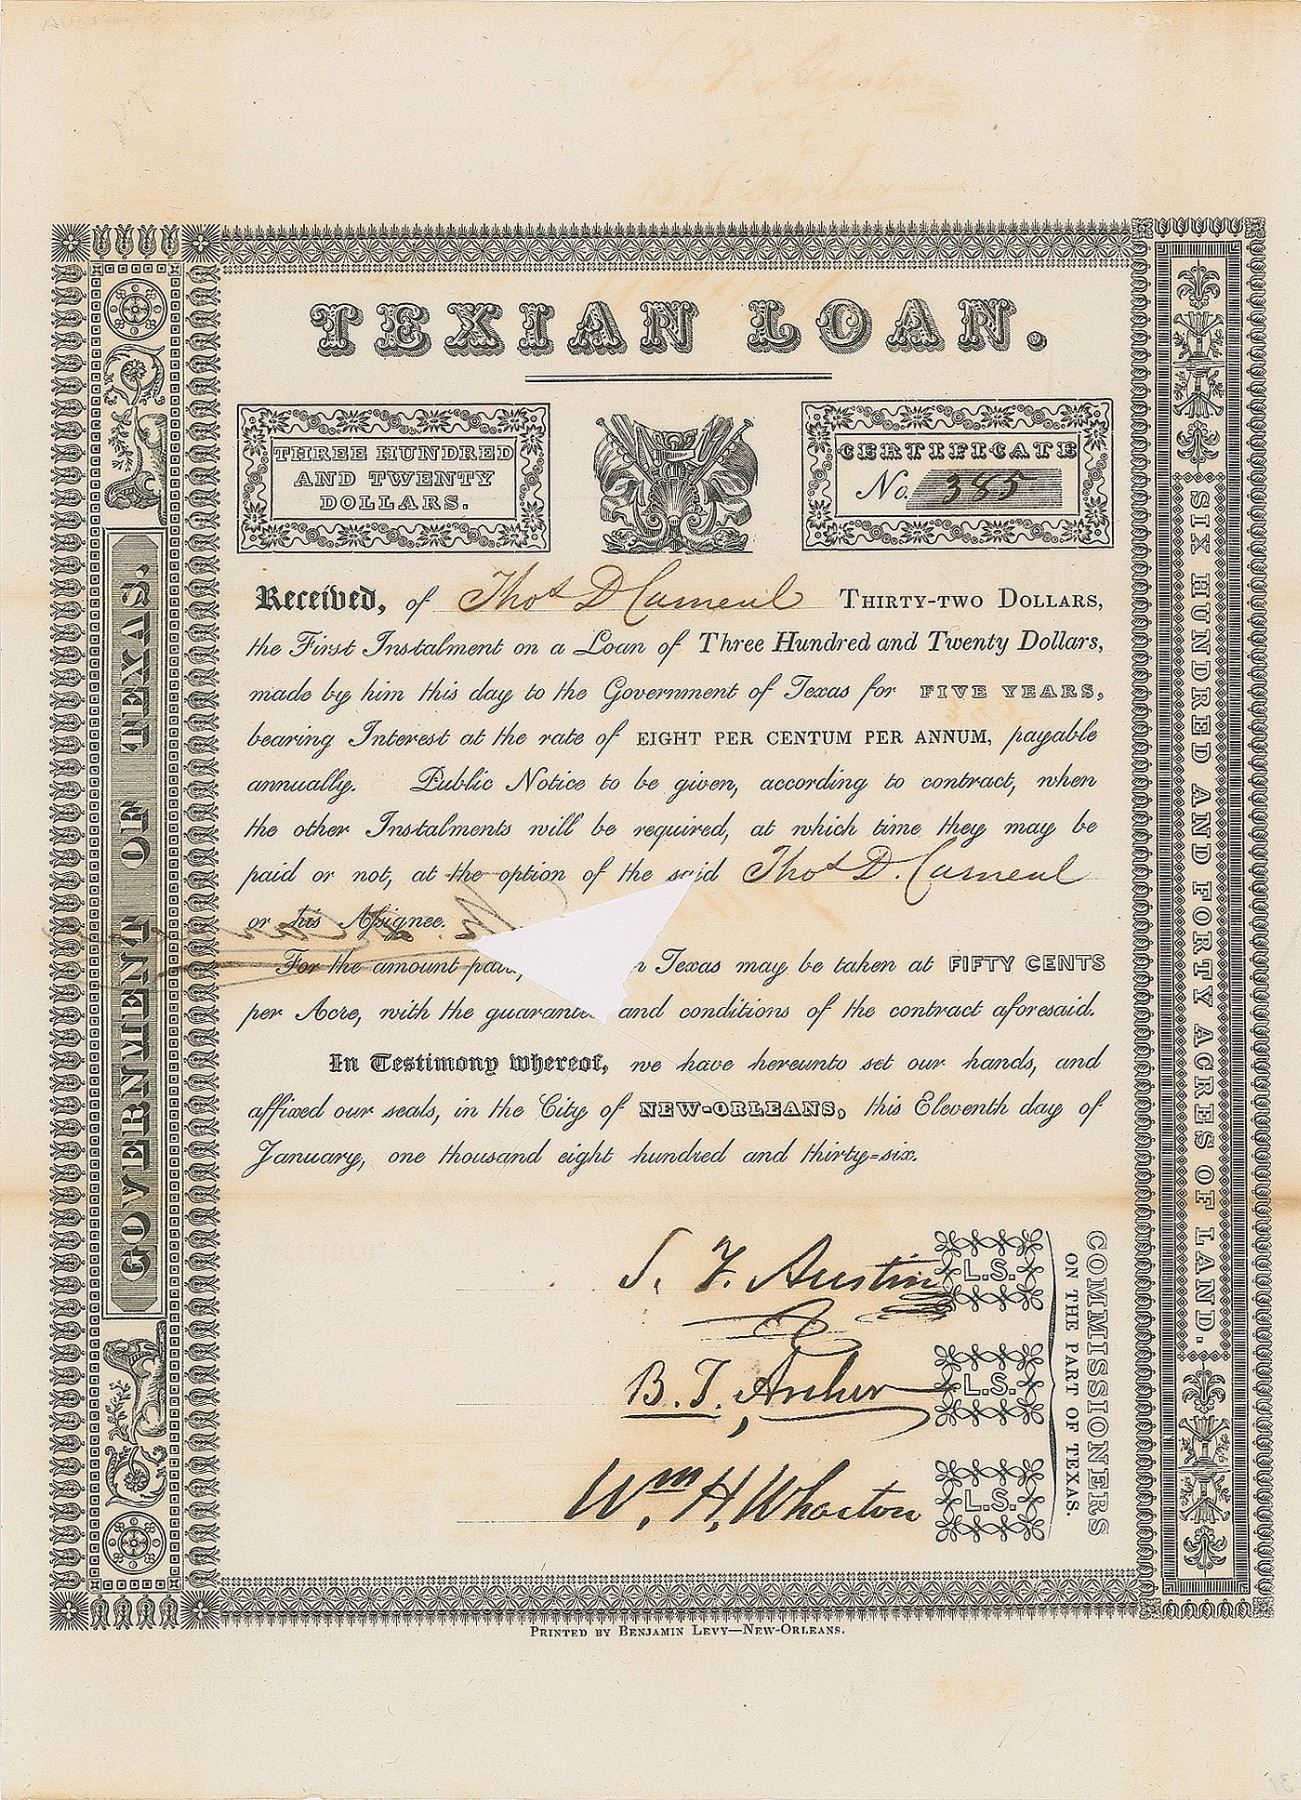 TEXIAN LOAN.
THREE HUNDRED
AND TWENTY
DOLLARS.
CERTIFICATE
No. 385
Received, of Thos D Carneal THIRTY-TWO DOLLARS,
the First Instalment on a Loan of Three Hundred and Twenty Dollars,
made by him this day to the Government of Texas for FIVE YEARS,
bearing Interest at the rate of EIGHT PER CENTUM PER ANNUM, payable
annually. Public Notice to be given, according to contract, when
the other Instalments will be required, at which time they may be
paid or not, at the option of the said Thos D. Carneal
or his Assignee.
For the amount paid, n Texas may be taken at FIFTY CENTS
per Acre, with the guarantees and conditions of the contract aforesaid.
In Testimony whereof, we have hereunto set our hands, and
affixed our seals, in the City of NEW-ORLEANS, this Eleventh day of
January, one thousand eight hundred and thirty-six.
S. F. Austin L.S.
B. T. Archer L.S.
Wm. H. Wharton L.S.
COMMISSIONERS
ON THE PART OF TEXAS.
GOVERNMENT OF TEXAS.
SIX HUNDRED AND FORTY ACRES OF LAND.
PRINTED BY BENJAMIN LEVY—NEW-ORLEANS.